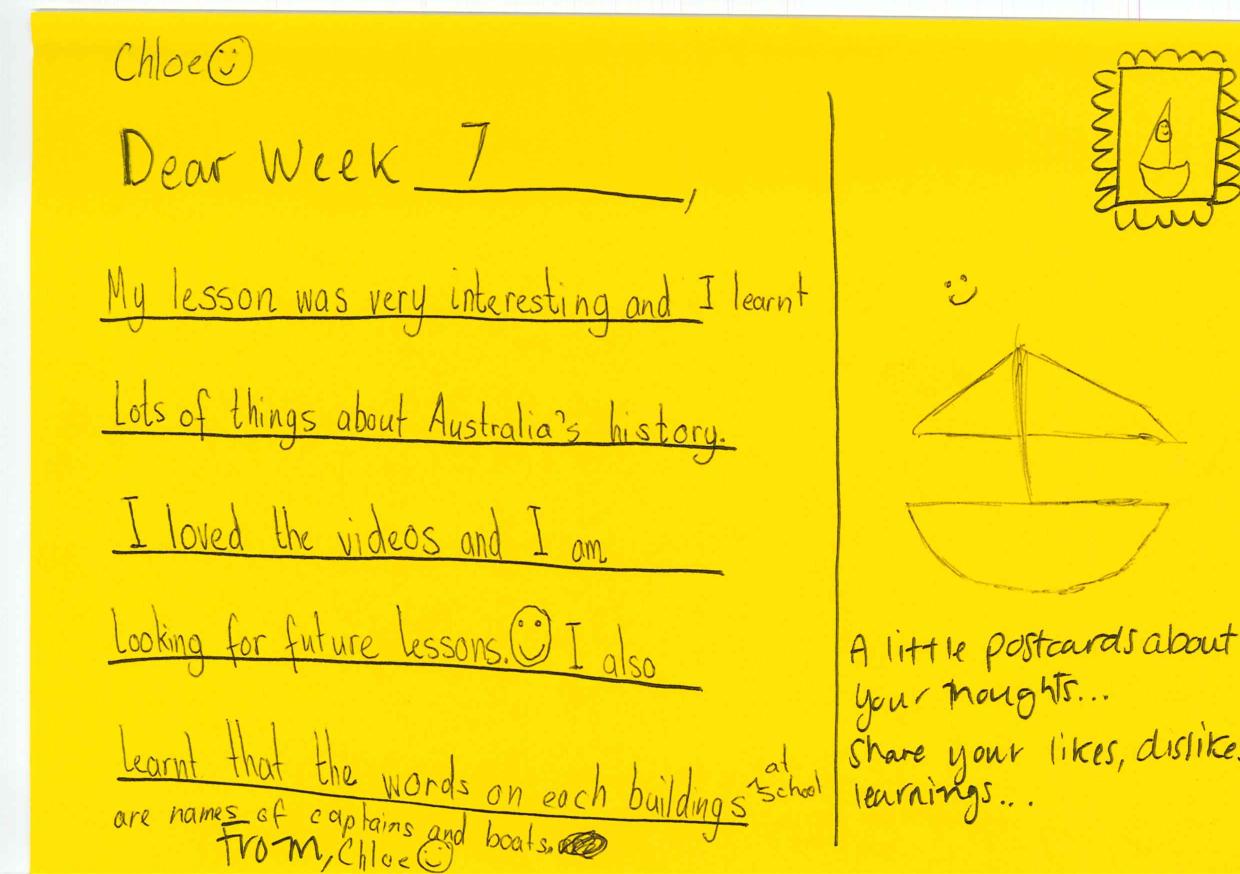 Chloe
Dear Week 7,
My lesson was very interesting and I learnt
Lots of things about Australia's history.
I loved the videos and I am
Looking for future lessons. I also
learnt that the words on each buildings at school
are names of captains and boats.
From, Chloe
A little postcards about
your thoughts...
Share your likes, dislike
learnings...